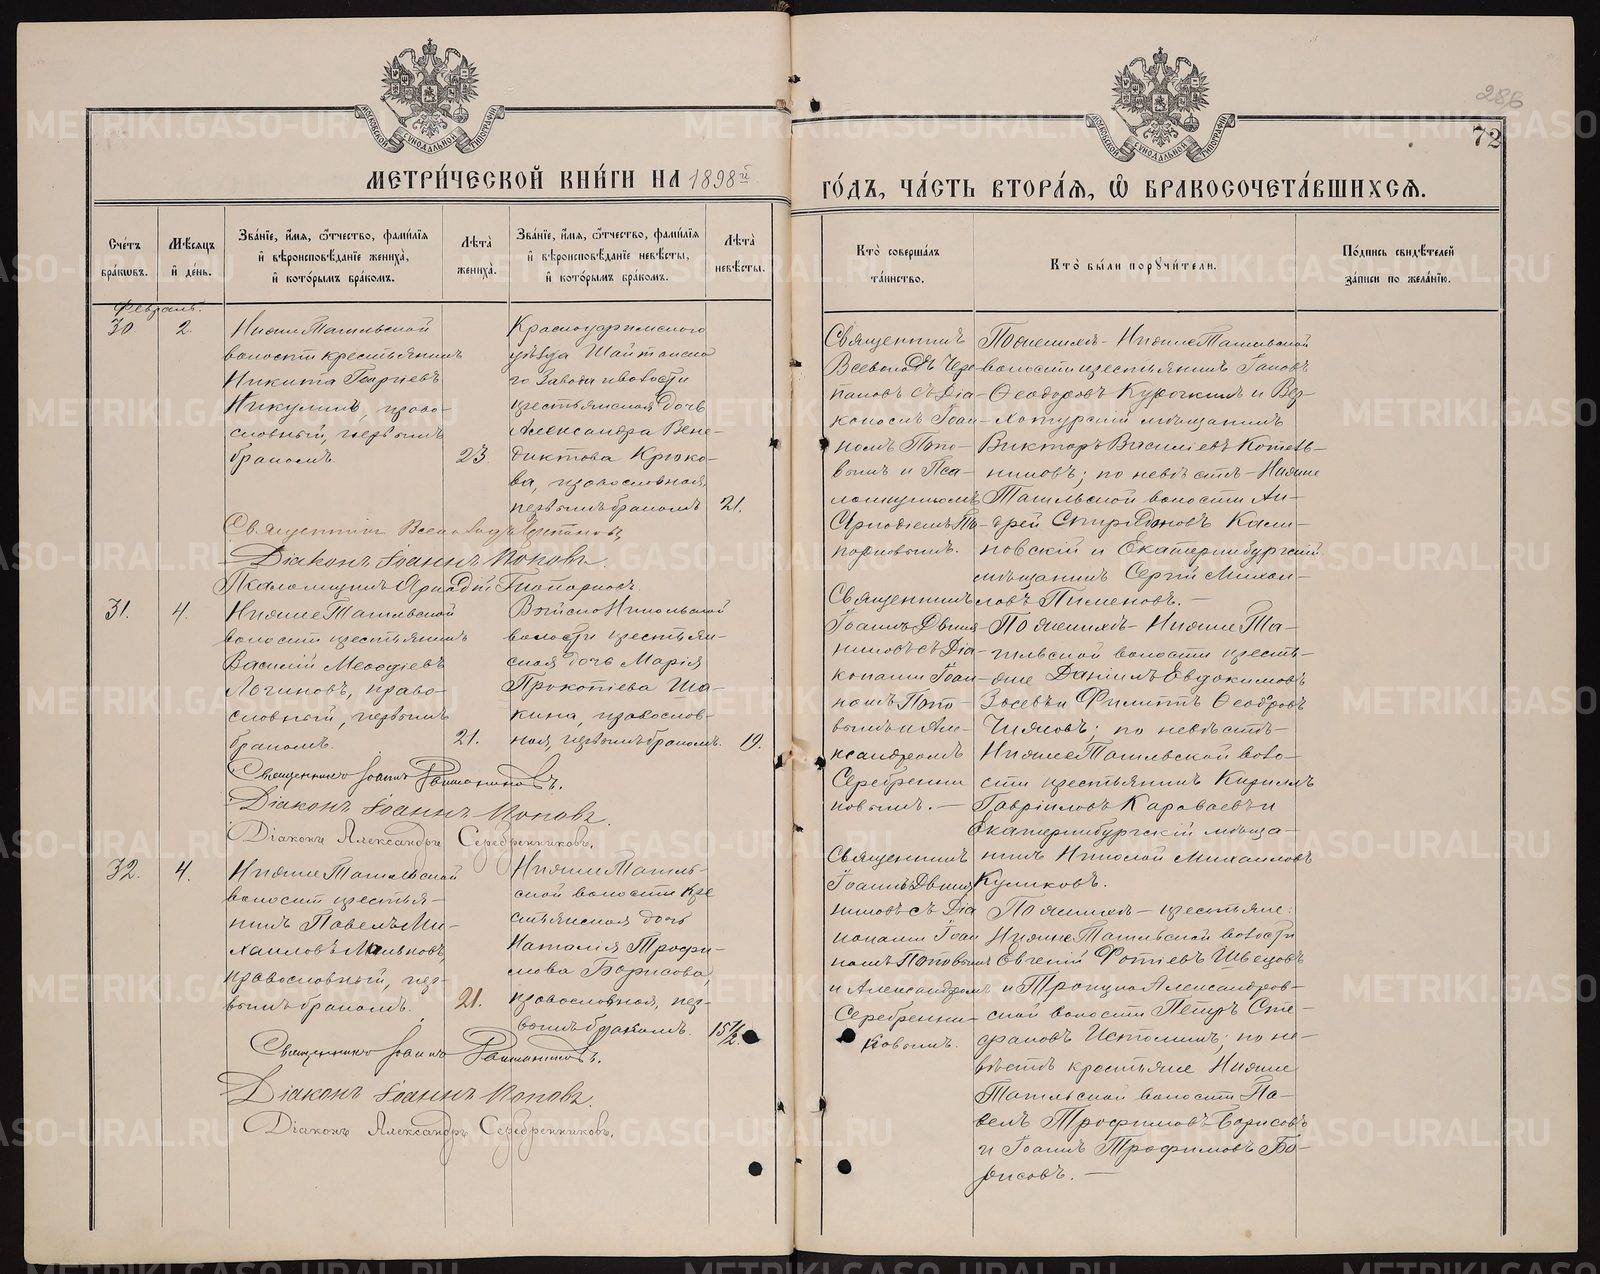 286
72
МОСКОВСКОЙ СѴНОДАЛЬНОЙ ТИПОГРАФІИ
МЕТРИ́ЧЕСКОЙ КНИ́ГИ НА 1898й
МОСКОВСКОЙ СѴНОДАЛЬНОЙ ТИПОГРАФІИ
ГО́ДЪ, ЧА́СТЬ ВТОРА́Я, Ѿ БРАКОСОЧЕТА́ВШИХСЯ.
Сче́тъ бра́ковъ.
Мѣ́сяцъ и де́нь.
Зва́нїе, и́мя, ѻ́тчество, фами́лїя
и вѣроисповѣ́данїе жениха̀,
и кото́рымъ бра́комъ.
Лѣ́та
жениха̀.
Зва́нїе, и́мя, ѻ́тчество, фами́лїя
и вѣроисповѣ́данїе невѣ́сты,
и кото́рымъ бра́комъ.
Лѣ́та
невѣ́сты.
Кто̀ соверша́лъ
та́инство.
Кто̀ бы́ли порꙋчи́тели.
По́дпись свидѣ́телей
за́писи по жела́нїю.
Февраль.
30
2.
Нижне Тагильской
волости крестьянинъ
Никита Георгіевъ
Никулинъ, право-
славный, первымъ
бракомъ.
23
Красноуфимскаго
уѣзда Шайтанска
го Завода и волости
крестьянская дочь
Александра Вене-
диктова Крюко-
ва, православная,
первымъ бракомъ
21.
Священникъ
Всеволодъ Чере
пановъ съ Діа-
кономъ Іоан-
номъ Попо-
вымъ и Пса-
ломщикомъ
Пономаремъ
Поженихѣ - Нижне Тагильской
волости крестьянинъ Іаковъ
Ѳеодоровъ Курочкинъ и Вер-
хотурскій мѣщанинъ
Викторъ Василіевъ Котель-
никовъ; по невѣстѣ - Нижне
Тагильской волости Ан-
дрей Спиридоновъ Кали-
новскій и Екатеринбургскій
мѣщанинъ Сергій Михаи-
ловъ Пименовъ. —
Священникъ Всеволодъ Черепановъ
Діаконъ Іоаннъ Поповъ.
Псаломщикъ Аркадій
31.
4.
Нижне Тагильской
волости крестьянинъ
Василій Меѳодіевъ
Логиновъ, право-
славный, первымъ
бракомъ.
21.
Выйско Никольской
волости крестьян-
ская дочь Марія
Прокопіева Ша-
кина, православ-
ная, первымъ бракомъ.
19.
Священникъ
Іоаннъ
съ Діа-
конами Іоан-
номъ Попо-
вымъ и Але-
ксандромъ
Серебренни
ковымъ. —
Поженихѣ - Нижне Та-
гильской волости кресть-
яне Даніилъ Евдокимовъ
Зосевъ и Филиппъ Ѳеодоровъ
Чижовъ; по невѣстѣ-
Нижне Тагильской воло-
сти крестьянинъ Кириллъ
Гавріиловъ Караваевъ и
Екатеринбургскій мѣща-
нинъ Николай Михаиловъ
Куликовъ.
Священникъ Іоаннъ
Діаконъ Іоаннъ Поповъ.
Діаконъ Александръ Серебренниковъ.
32.
4.
Нижне Тагильской
волости крестья-
нинъ Павелъ Ми-
хаиловъ Мальковъ,
православный, пер-
вымъ бракомъ.
21.
Нижне Тагиль-
ской волости кре
стьянская дочь
Наталія Трофи-
мова Борисова,
православная, пер-
вымъ бракомъ.
15½.
Священникъ
Іоаннъ
съ Діа
конами Іоан
номъ Поповымъ
и Александромъ
Серебренни-
ковымъ.
Поженихѣ - крестьяне:
Нижне Тагильской волости
Евгеній Фотіевъ Швецовъ
и Троицко Александров-
ской волости Петръ Сте-
фановъ Истоминъ; по не-
вѣстѣ крестьяне Нижне
Тагильской волости Па-
велъ Трофимовъ Борисовъ
и Іоаннъ Трофимовъ Бо-
рисовъ. —
Священникъ Іоаннъ
Діаконъ Іоаннъ Поповъ.
Діаконъ Александръ Серебренниковъ.
METRIKI.GASO-URAL.RU